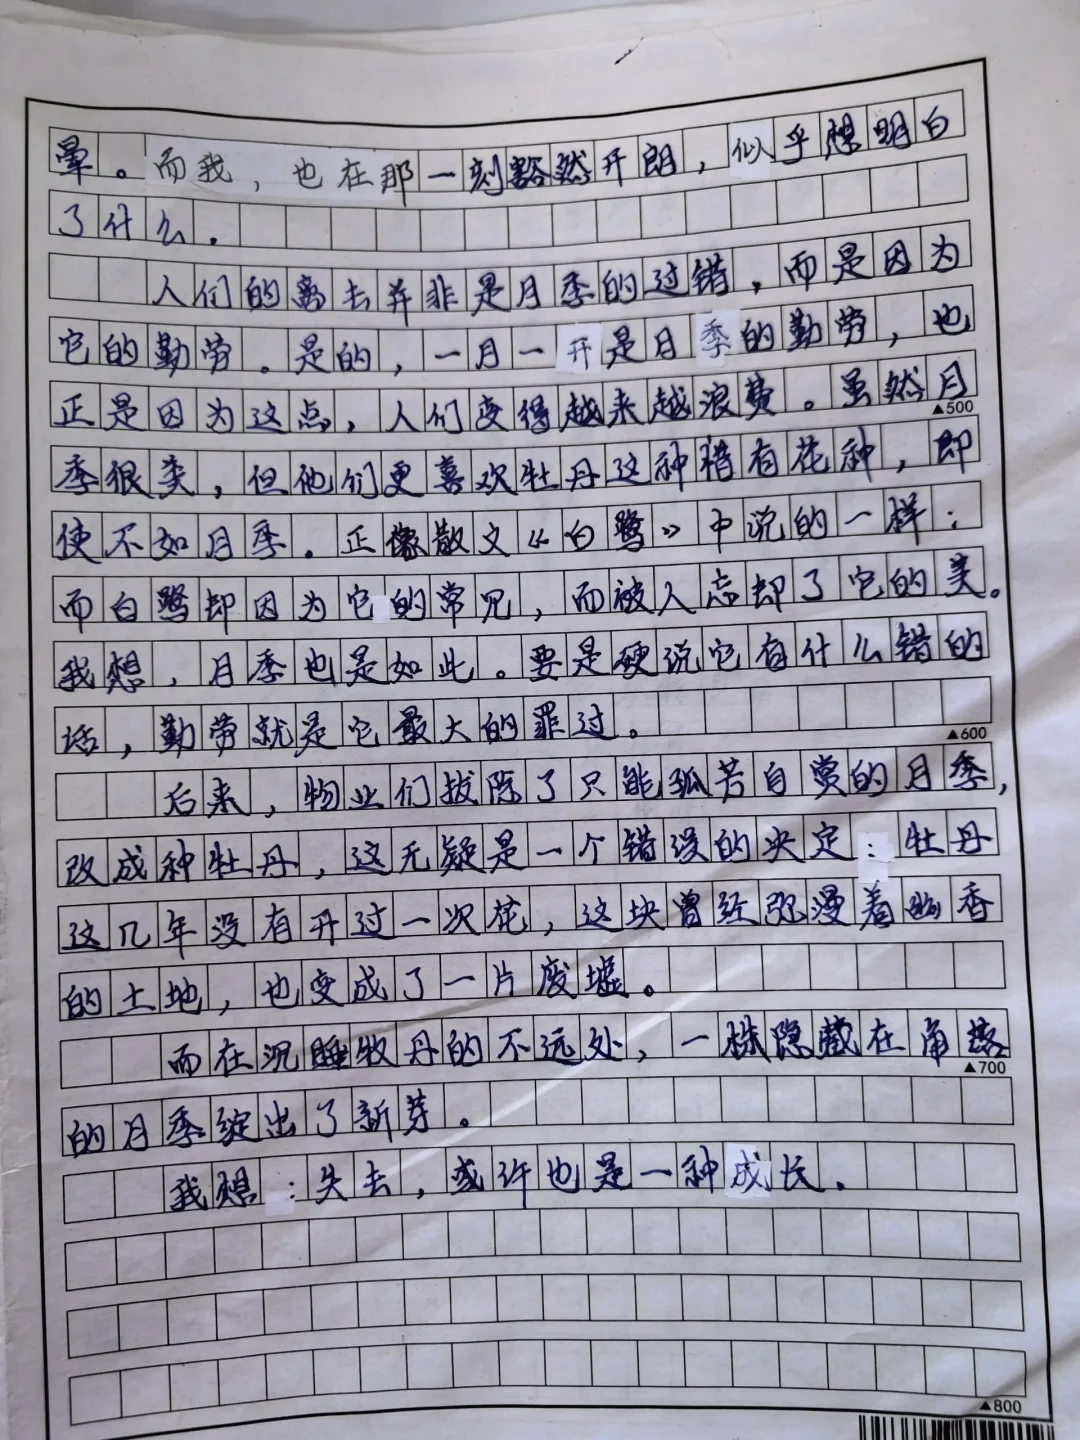 晕。而我，也在那一刻豁然开朗，似乎想明白
了什么。
人们的离去并非是月季的过错，而是因为
它的勤劳。是的，一月一开是月季的勤劳，也
正是因为这点，人们变得越来越浪费。虽然月
▲500
季很美，但他们更喜欢牡丹这种稀有花种，即
使不如月季。正像散文《白鹭》中说的一样：
而白鹭却因为它的常见，而被人忘却了它的美。
我想，月季也是如此。要是硬说它有什么错的
话，勤劳就是它最大的罪过。
▲600
后来，物业们拔除了只能孤芳自赏的月季，
改成种牡丹，这无疑是一个错误的决定：牡丹
这几年没有开过一次花，这块曾经弥漫着幽香
的土地，也变成了一片废墟。
而在沉睡牧丹的不远处，一株隐藏在角落
▲700
的月季绽出了新芽。
我想：失去，或许也是一种成长。
▲800